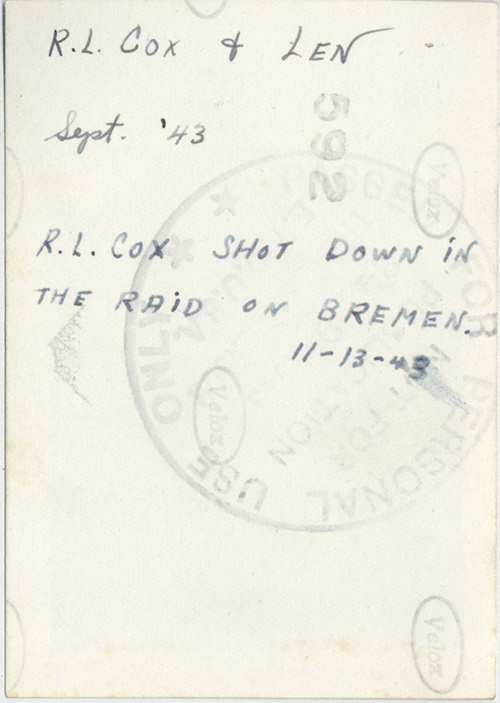 R.L. COX & LEN
592
Sept. '43
R.L. COX SHOT DOWN IN
THE RAID ON BREMEN.
11-13-43
FOR PERSONAL USE ONLY
NOT FOR
Velox
Velox
Velox